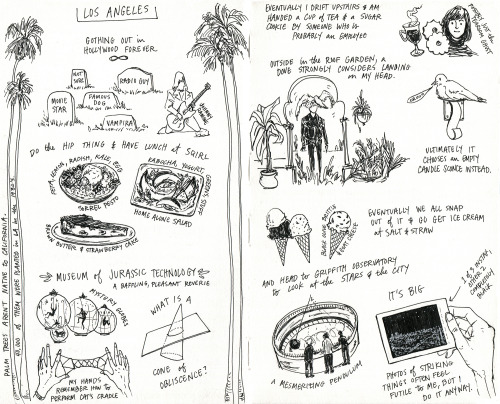 LOS ANGELES
GOTHING OUT in
HOLLYWOOD FOREVER
NOT SURE
RADIO GUY
MOVIE STAR
FAMOUS DOG
VAMPIRA
JOHNNY RAMONE
Do the HIP THING & HAVE LUNCH at SQIRL
FETA, LEMON, RADISH, KALE, EGG
SORREL PESTO
KABOCHA, YOGURT,
GREEN STUFF
HOME ALONE SALAD
BROWN BUTTER & STRAWBERRY CAKE
MUSEUM of JURASSIC TECHNOLOGY
A BAFFLING, PLEASANT REVERIE
MYSTERY GLOBES
WHAT IS A
CONE OF
OBLISCENCE?
MY HANDS
REMEMBER HOW TO
PERFORM CAT'S CRADLE
PALM TREES AREN'T NATIVE to CALIFORNIA.
OF THEM WERE PLANTED in LA in the 1930s
EVENTUALLY I DRIFT UPSTAIRS & AM
HANDED A CUP of TEA & a SUGAR
COOKIE BY SOMEONE WHO IS
PROBABLY an EMPLOYEE
OUTSIDE in the ROOF GARDEN, a
DOVE STRONGLY CONSIDERS LANDING
on MY HEAD.
ULTIMATELY IT
CHOOSES an EMPTY
CANDLE SCONCE INSTEAD.
EVENTUALLY WE ALL SNAP
OUT of IT & GO GET ICE CREAM
at SALT & STRAW
AND HEAD to GRIFFITH OBSERVATORY
to LOOK at the STARS & the CITY
A MESMERIZING PENDULUM
IT'S BIG
PHOTOS of STRIKING
THINGS OFTEN FEEL
FUTILE to ME, BUT I
DO IT ANYWAY.